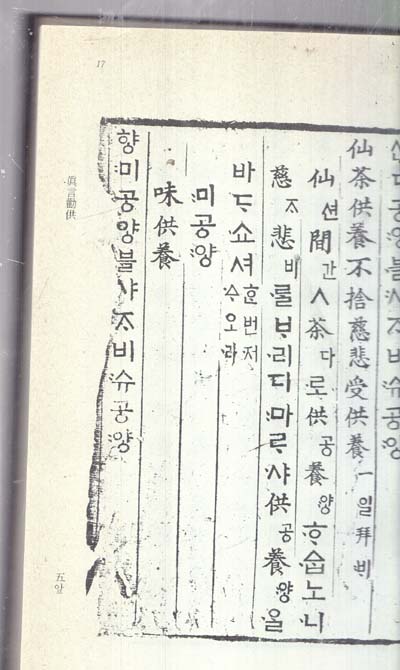 17
仙茶供養不捨慈悲受供養 一일拜비
仙션間간ㅅ茶다로供공養양ᄒᆞᅀᆞᆸ노니
慈ᄌᆞ悲비ᄅᆞᆯᄇᆞ리디마ᄅᆞ샤供공養양ᄋᆞᆯ
바ᄃᆞ쇼셔 ᄒᆞᆫ번저ᅀᆞ오라
미공양
味供養
향미공양블샤ᄌᆞ비슈공양
眞言勸供
五앞